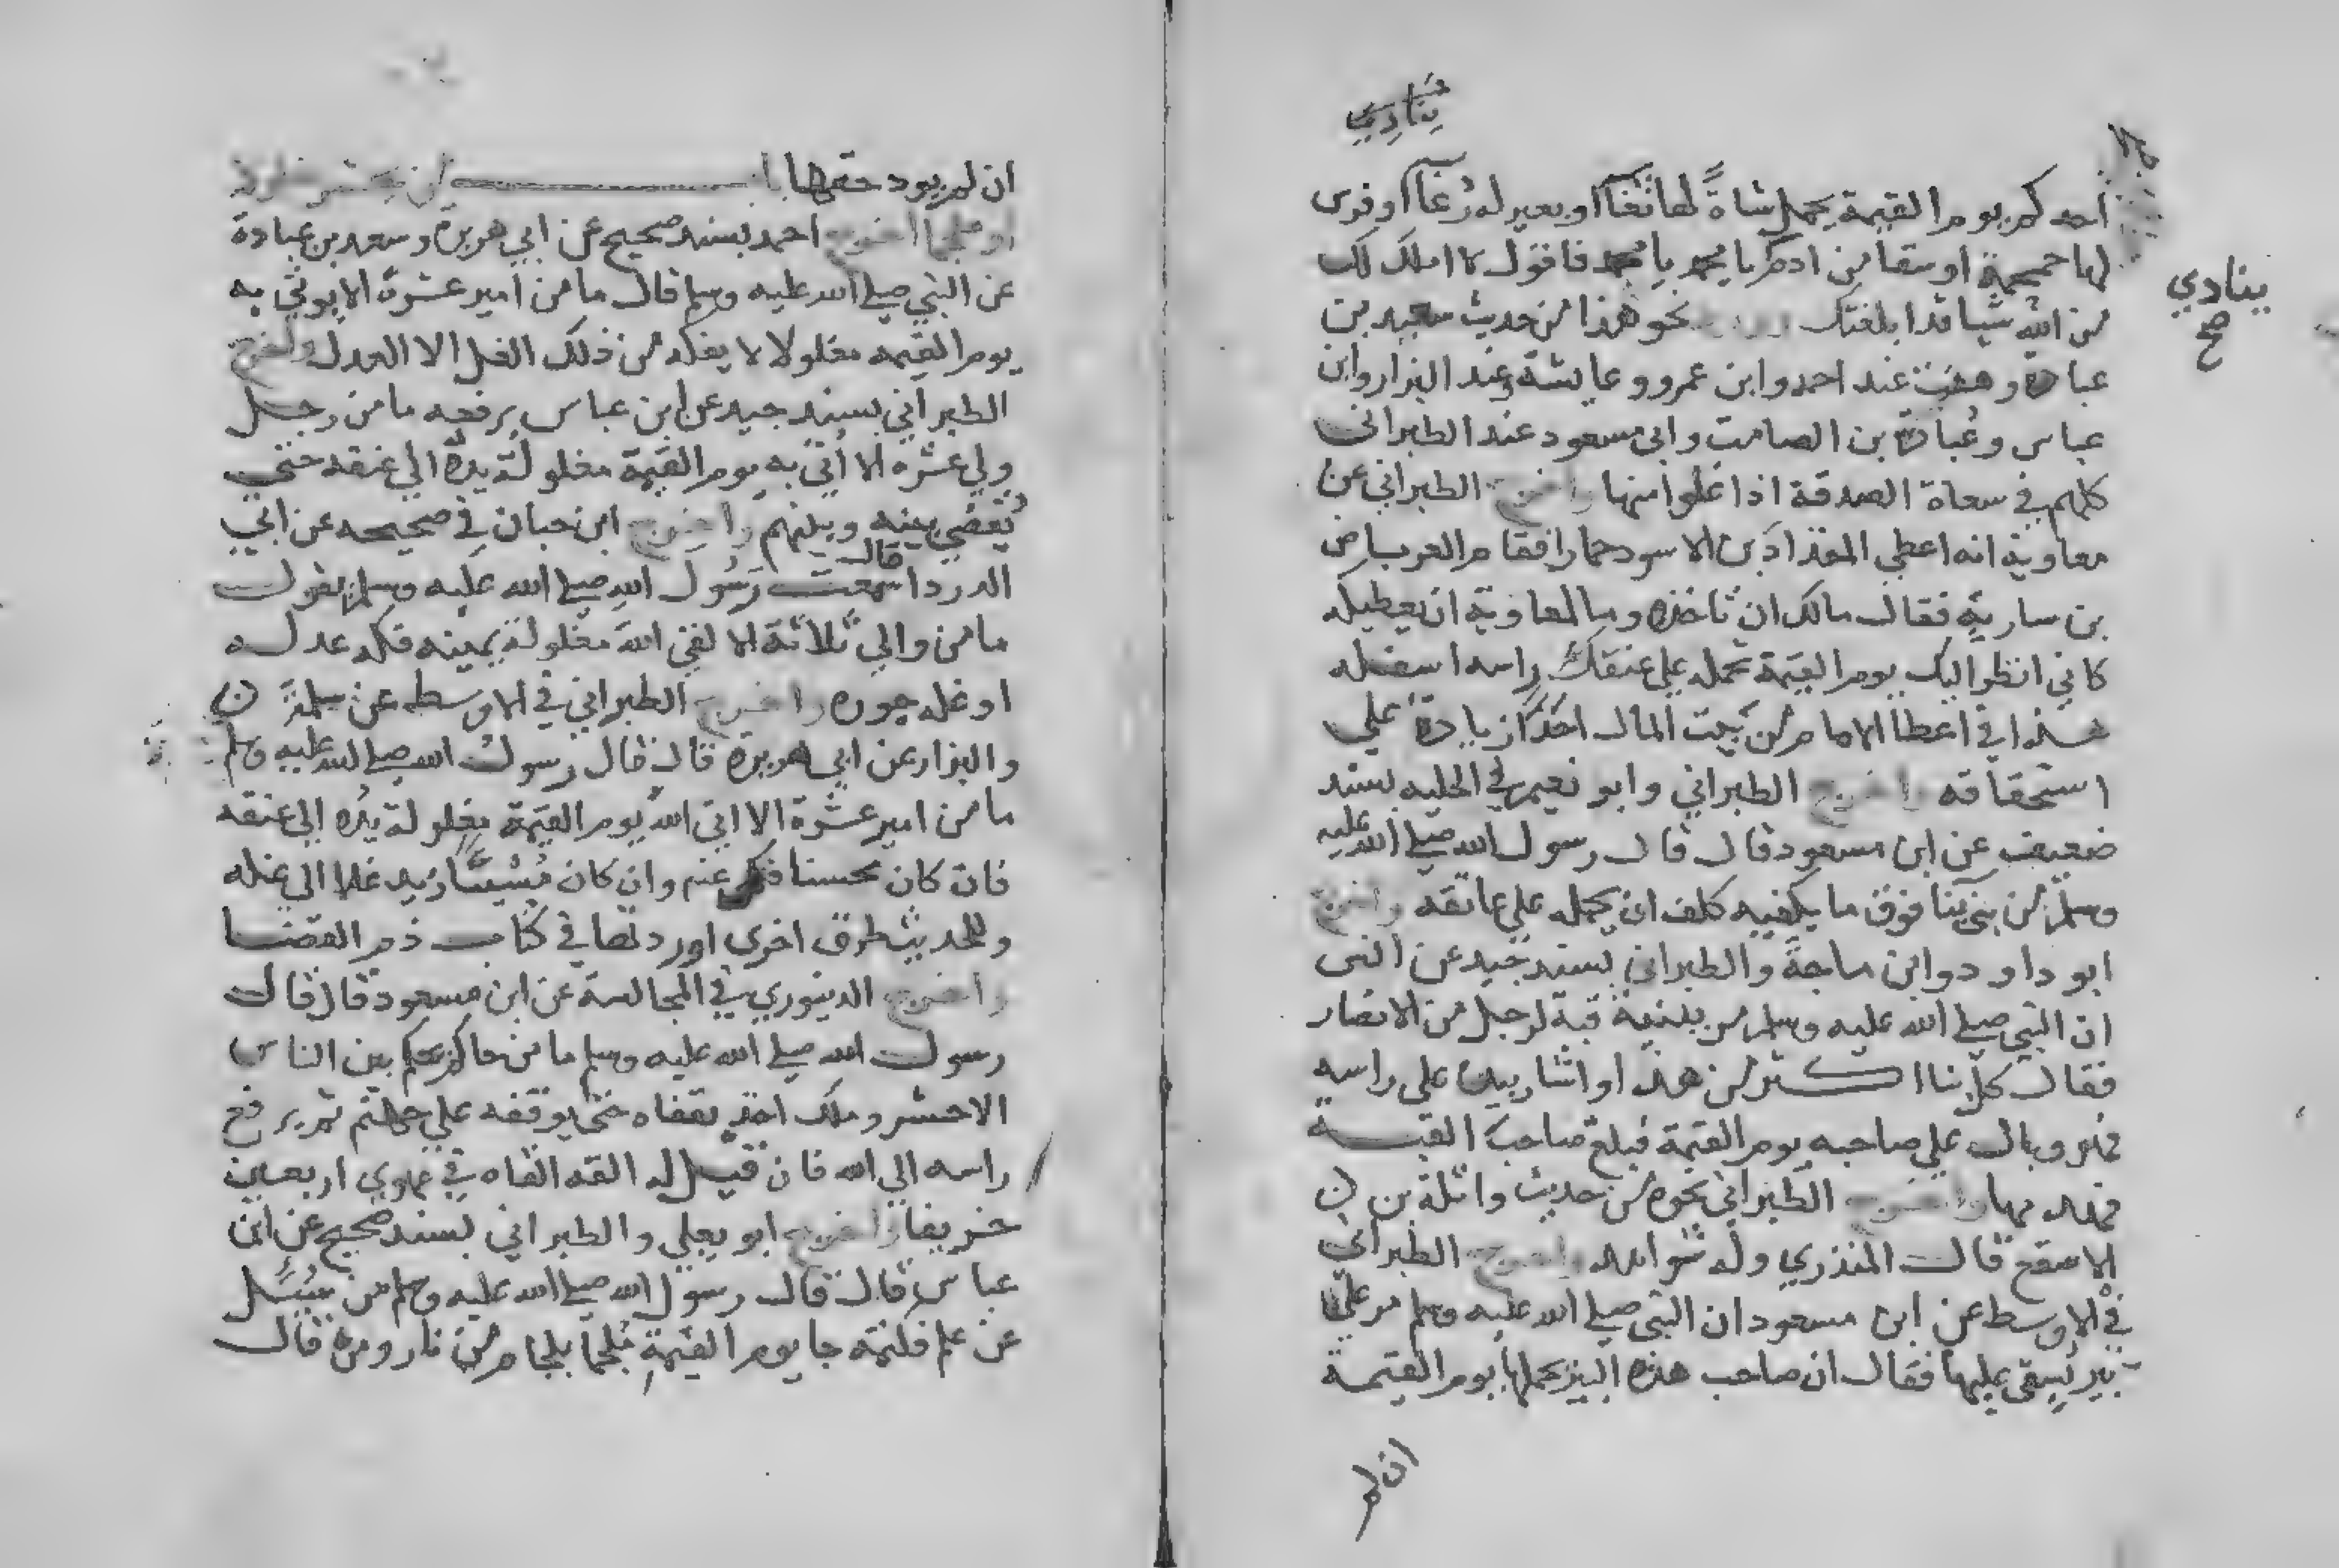 ينادي
احدكم يوم القيمة يحمل شاةً لها ثغآ او بعير له رُغآ او فرس
لها حمحمة او سقا من ادم ينادي يا محمد يا محمد فاقول لا املك لك
ينادي
صح
من الله شيا قد ابلغتك نحو هذا من حديث سعد بن
عبادة وهلب عند احمد وابن عمر وعايشة وعند البزار وابن
عباس وعُبادة بن الصامت وابي مسعود عند الطبراني
كلهم في سعاة الصدقة اذا غلوا منها واخرج الطبراني عن
معاوية انه اعطي المقداد بن الاسود حمارا فقام العرباض
بن سارية فقال مالك ان تاخذه وما لمعاوية ان يعطيكه
كاني انظر اليك يوم القيمة تحمله علي عنقك راسه اسفله
هذا في اعطا الامام من بيت المال احدًا زيادة علي
استحقاقه واخرج الطبراني وابو نعيم في الحليه بسند
ضعيف عن ابن مسعود قال قال رسول الله صلي الله عليه
وسلم من بني بنا فوق ما يكفيه كلف ان يحمله علي عاتقه واخرج
ابو داود وابن ماجة والطبراني بسند جيد عن انس
ان النبي صلي الله عليه وسلم مر ببنية قبة لرجل من الانصار
فقال كل بنا اكثر من هذا واشار بيده علي راسه
فهو وبال علي صاحبه يوم القيمة فبلغ صاحب القبة
فهدمها واخرج الطبراني نحوه من حديث واثلة بن
الاسقع قال المنذري وله شواهد واخرج الطبراني
في الاوسط عن ابن مسعود ان النبي صلي الله عليه وسلم مر علي
بير يُسقي عليها فقال ان صاحب هذه البير يحملها يوم القيمة
ان لم
ان لم يود حقها باب من يحشر مغلولا
او ملجما اخرج احمد بسند صحيح عن ابي هريرة وسعد بن عبادة
عن النبي صلي الله عليه وسلم قال ما من امير عشرة الا يوتي به
يوم القيمه مغلولا لا يفكه من ذلك الغل الا العدل واخرج
الطبراني بسند جيد عن ابن عباس يرفعه ما من رجل
ولي عشره الا اُتي به يوم القيمة مغلولة يده الي عنقه حتي
يُقضي بينه وبينهم واخرج ابن حبان في صحيحه عن ابي
الدردا قال سمعت رسول الله صلي الله عليه وسلم يقول
ما من والي ثلاثة الا لقي الله مغلولة يمينه فكه عدله
او غله جوره واخرج الطبراني في الاوسط عن
والبزار عن ابي هريرة قال قال رسول الله صلي الله عليه وسلم
ما من امير عشرة الا اتي الله يوم القيمة مغلولة يده الي عنقه
فان كان محسنا فك عنه وان كان مُسيئًا زيد غلا الي غله
وللحديث طرق اخري اوردتها في كتاب ذم القضا
واخرج الدينوري في المجالسة عن ابن مسعود قال قال
رسول الله صلي الله عليه وسلم ما من حاكم يحكم بين الناس
الا حشر وملك اخذ بقفاه حتي يوقفه علي جهنم ثم يرفع
راسه الي الله فان قيل له القه القاه في مهوي اربعين
خريفا واخرج ابو يعلي والطبراني بسند صحيح عن ابن
عباس قال قال رسول الله صلي الله عليه وسلم من سُئل
عن علم فكتمه جا يوم القيمة مُلجما بلجام من نار ومن قال